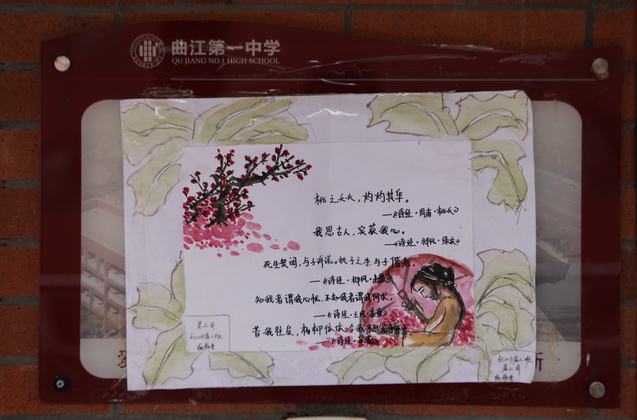 曲江第一中学
QU JIANG NO.1 HIGH SCHOOL
桃之夭夭，灼灼其华。
——《诗经·周南·桃夭》
我思古人，实获我心。
——《诗经·邶风·绿衣》
死生契阔，与子成说。执子之手与子偕老。
——《诗经·邶风·击鼓》
知我者谓我心忧，不知我者谓我何求。
——《诗经·王风·黍离》
昔我往矣，杨柳依依
第二名
第二名